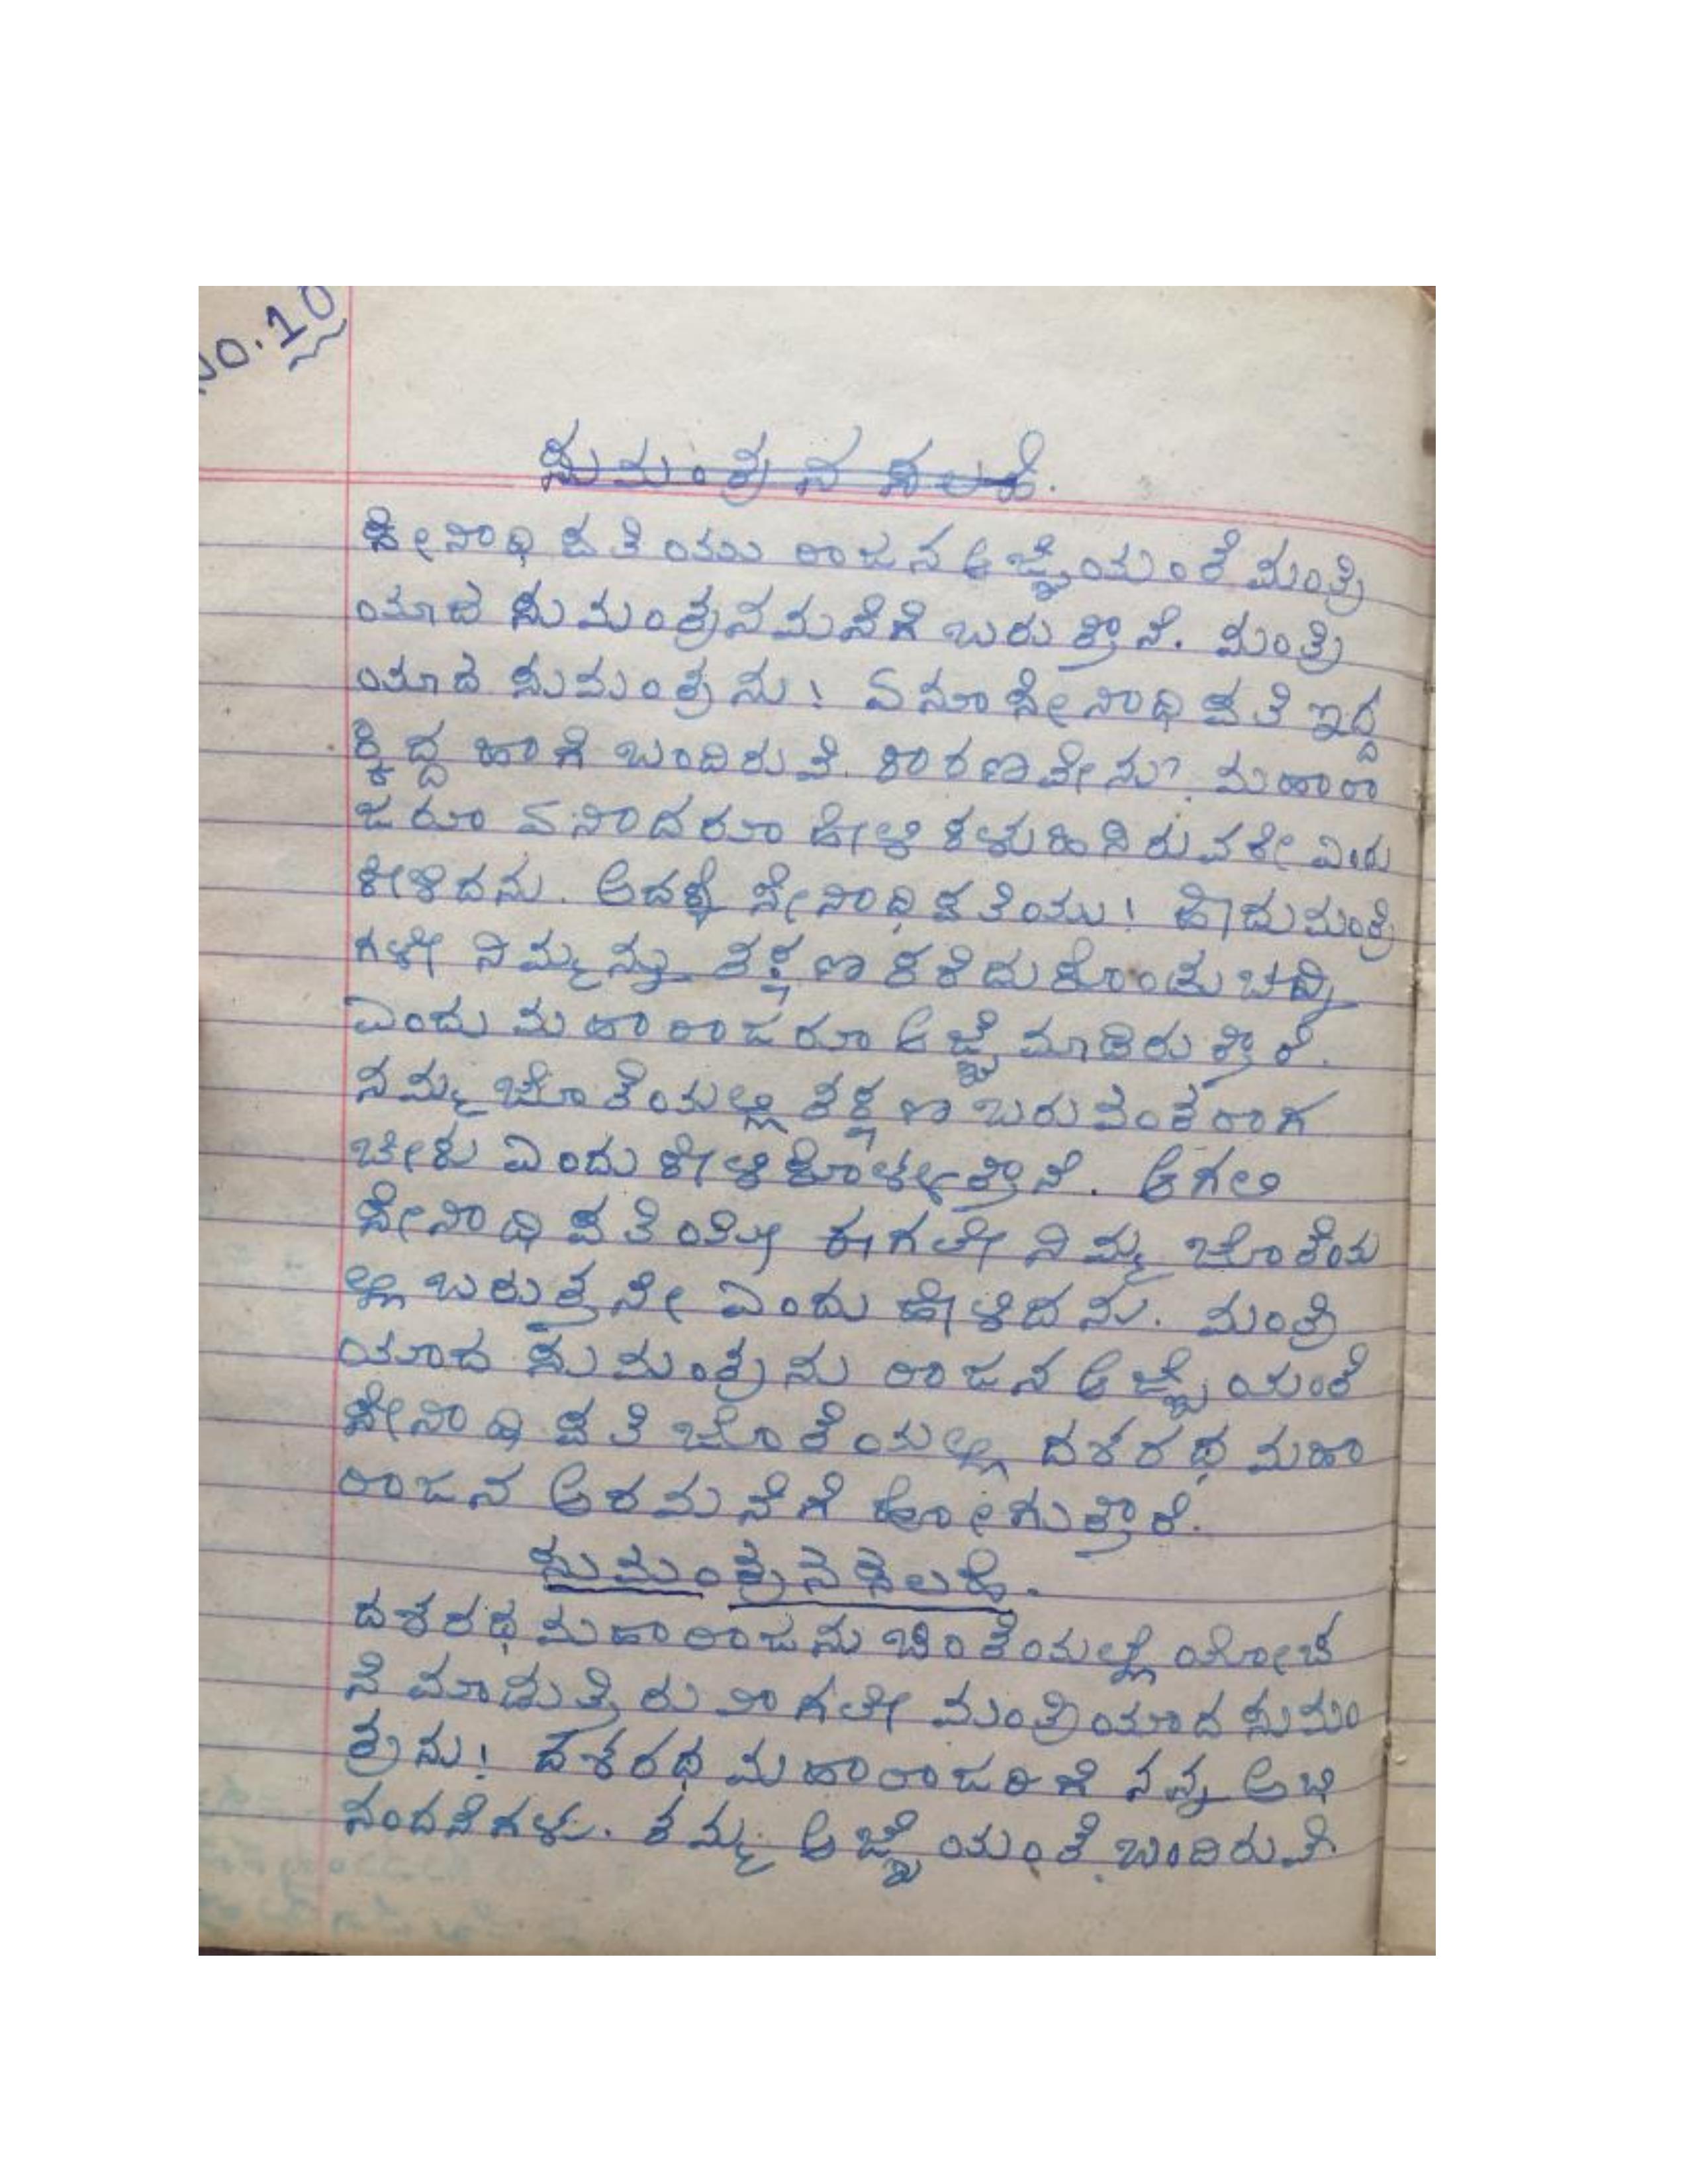 No.10
ಸುಮಂತ್ರನ ಸಲಹೆ.
ಸೇನಾಧಿಪತಿಯು ರಾಜನ ಆಜ್ಞೆಯಂತೆ ಮಂತ್ರಿ
ಯಾದ ಸುಮಂತ್ರನಮನೆಗೆ ಬರುತ್ತಾನೆ. ಮಂತ್ರಿ
ಯಾದ ಸುಮಂತ್ರನು! ಏನೂ ಸೇನಾಧಿಪತಿ ಇದ್ದ
ಕ್ಕಿದ್ದ ಹಾಗೆ ಬಂದಿರುವೆ. ಕಾರಣವೇನು? ಮಹಾರಾ
ಜರೂ ಏನಾದರೂ ಹೇಳಿ ಕಳುಹಿಸಿರುವರೇ ಎಂದು
ಕೇಳಿದನು. ಅದಕ್ಕೆ ಸೇನಾಧಿಪತಿಯು! ಹೌದು ಮಂತ್ರಿ
ಗಳೇ ನಿಮ್ಮನ್ನು ತಕ್ಷಣ ಕರೆದುಕೊಂಡು ಬನ್ನಿ
ಎಂದು ಮಹಾರಾಜರೂ ಆಜ್ಞೆ ಮಾಡಿರುತ್ತಾರೆ.
ನಮ್ಮ ಜೊತೆಯಲ್ಲಿ ತಕ್ಷಣ ಬರುವಂತರಾಗ
ಬೇಕು ಎಂದು ಕೇಳಿಕೊಳ್ಳುತ್ತಾನೆ. ಆಗಲಿ
ಸೇನಾಧಿಪತಿಯೇ ಈಗಲೇ ನಿಮ್ಮ ಜೊತೆಯ
ಲ್ಲಿ ಬರುತ್ತನೇ ಎಂದು ಹೇಳಿದನು. ಮಂತ್ರಿ
ಯಾದ ಸುಮಂತ್ರನು ರಾಜನ ಆಜ್ಞೆಯಂತೆ
ಸೇನಾಧಿಪತಿ ಜೊತೆಯಲ್ಲಿ ದಶರಥ ಮಹಾ
ರಾಜನ ಅರಮನೆಗೆ ಹೋಗುತ್ತಾರೆ.
ಸುಮಂತ್ರನ ಸಲಹೆ.
ದಶರಥ ಮಹಾರಾಜನು ಚಿಂತೆಯಲ್ಲೆ ಯೋಚ
ನೆ ಮಾಡುತ್ತಿರುವಾಗಲೇ ಮಂತ್ರಿಯಾದ ಸುಮಂ
ತ್ರನು! ದಶರಥ ಮಹಾರಾಜರಿಗೆ ನನ್ನ ಅಭಿ
ನಂದನೆಗಳು. ತಮ್ಮ ಆಜ್ಞೆಯಂತೆ ಬಂದಿರುವೆ